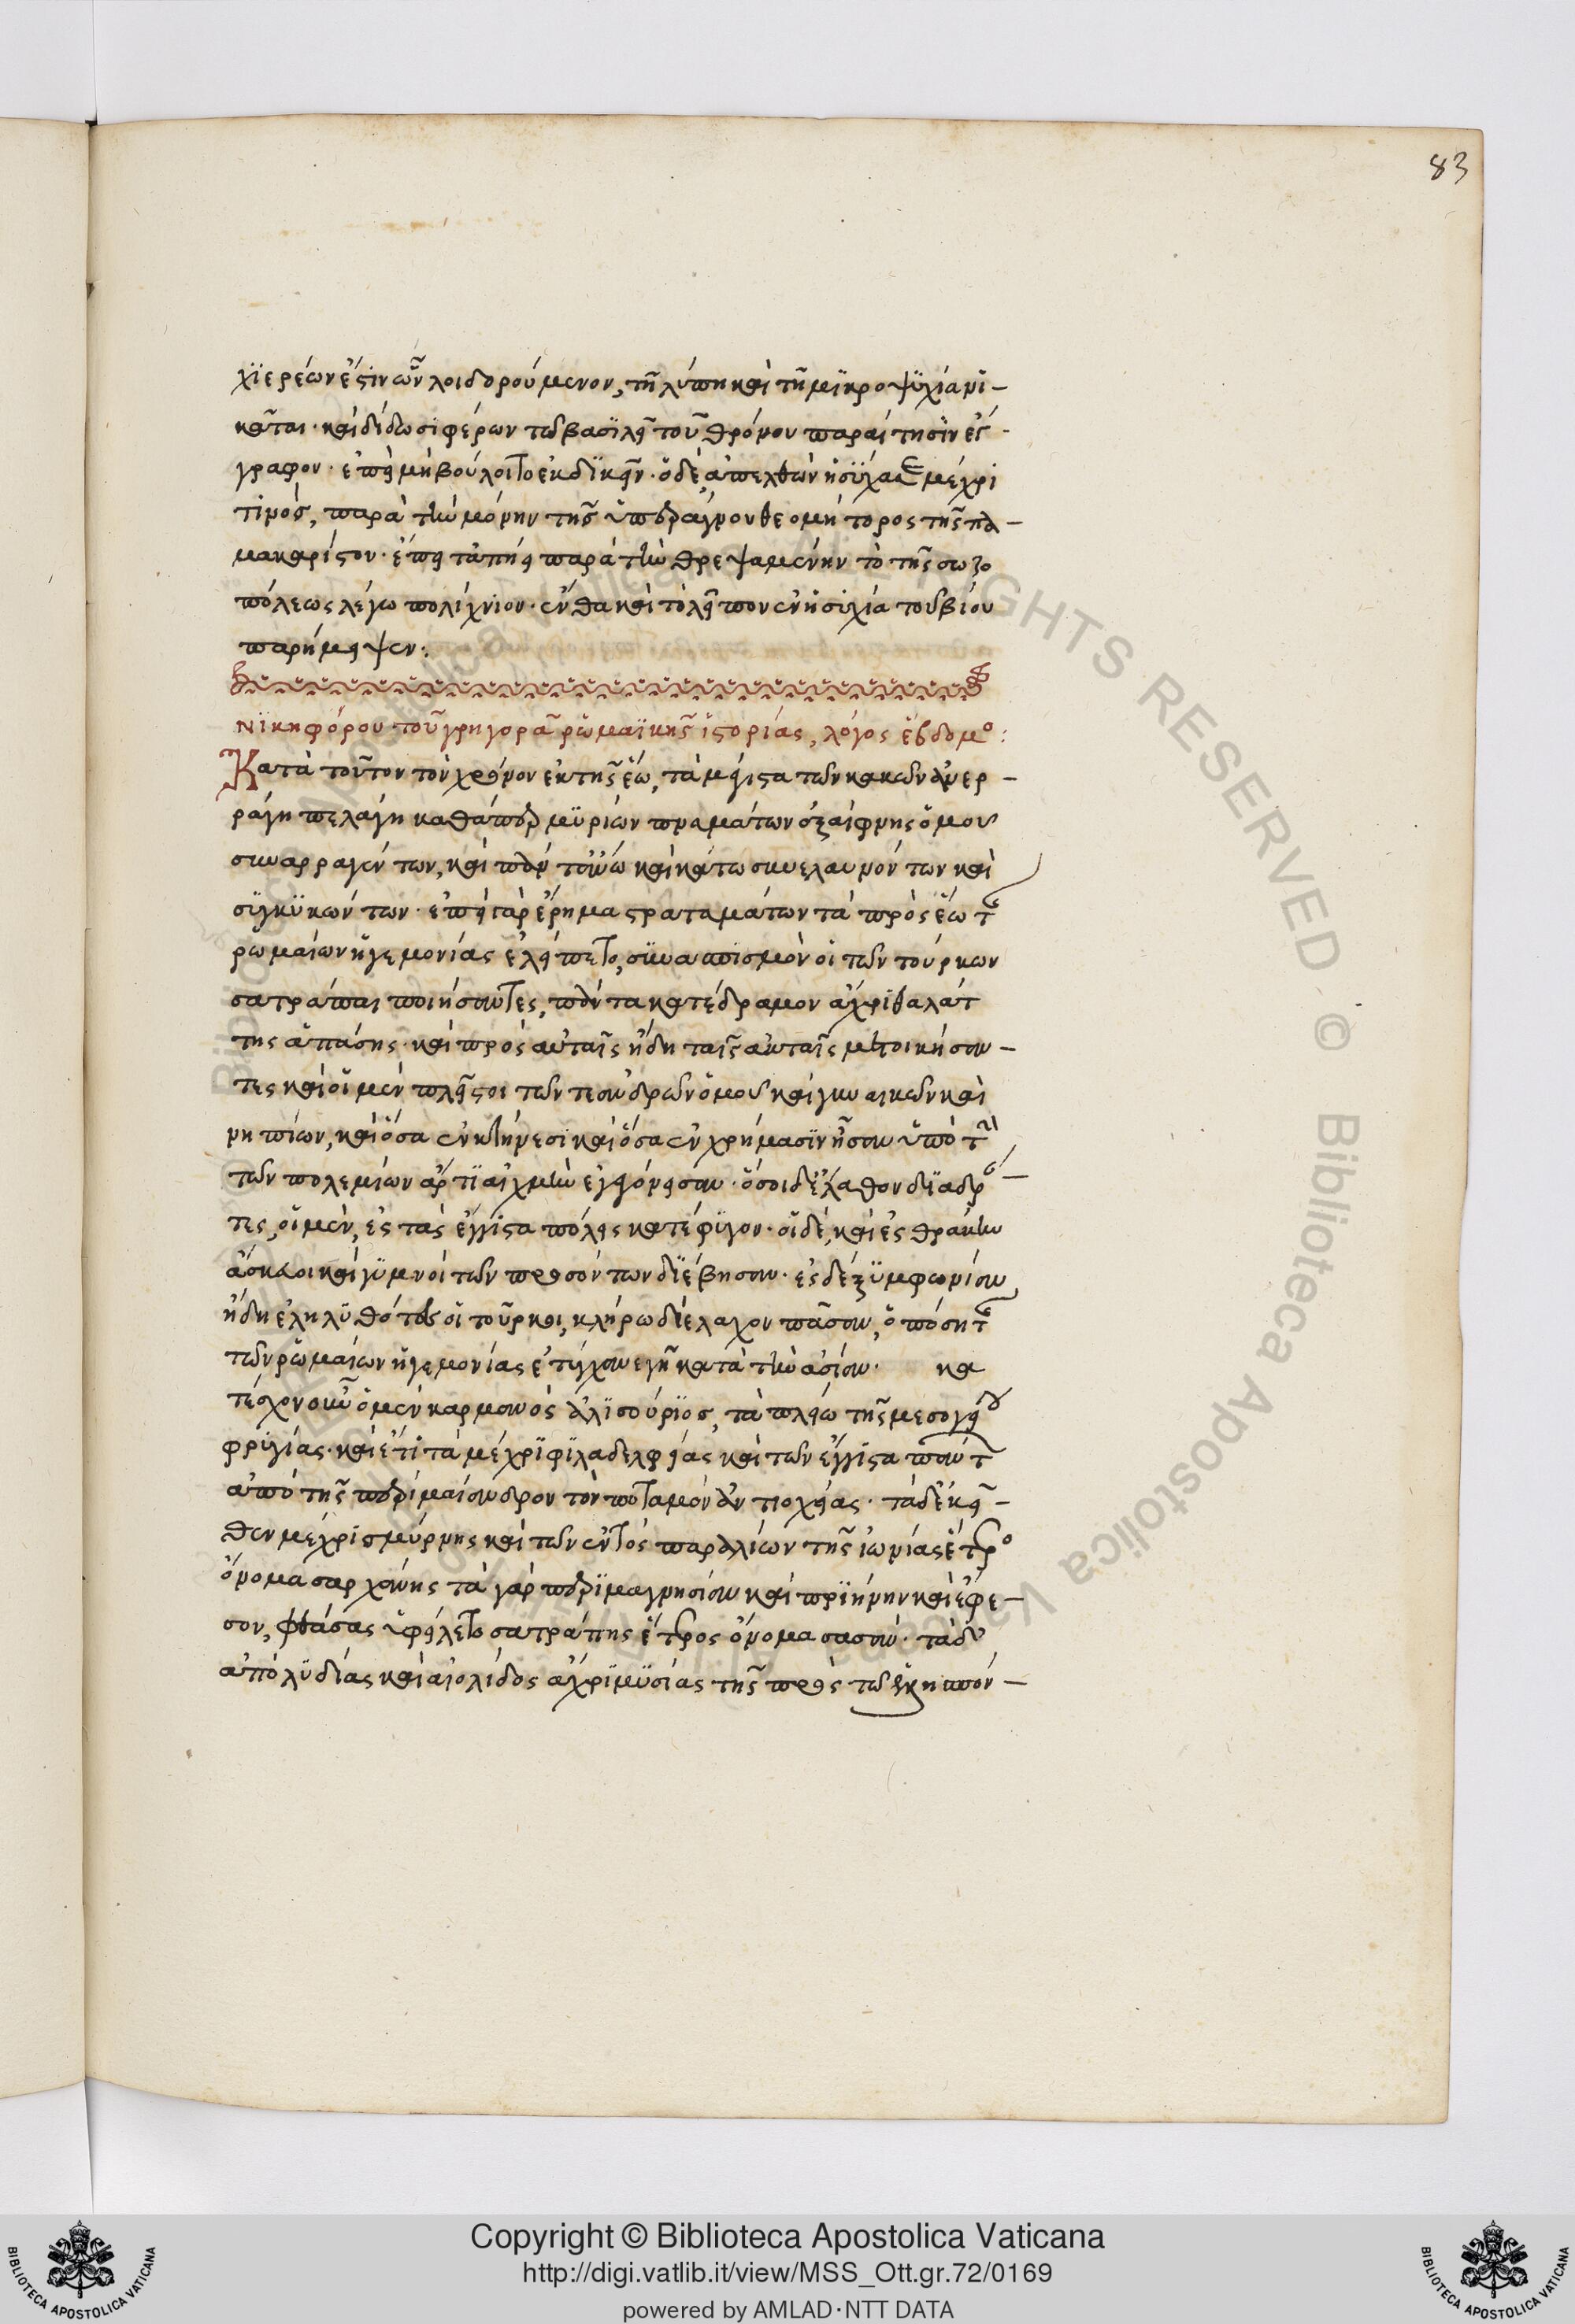 83
χϊερέων ἔστιν ὧν λοιδορούμενον, τῆ λύπη καὶ τῆ μϊκροψϋχία νϊ-
κᾶται· καὶ δίδωσι φέρων τῶ βασϊλεῖ τοῦ θρόνου παραίτησιν ἔγ-
γραφον· ἐπεὶ μὴ βούλοιτο ἐκδϊκεῖν· ὁ δὲ, ἀπελθὼν ἡσΰχασε μέχρι
τινὸς, παρὰ τὴν μόνην τῆς ὑπεράγνου θεομήτορος τῆς πα-
μακαρίστου· ἔπειτ' ἀπήει παρὰ τὴν θρεψαμένην τὸ τῆς σωζο
πόλεως λέγω πολίχνιον· ἔνθα καὶ τὸ λεῖπον ἐν ἡσιχία τοῦ βίου
παρήμειψεν:
Νϊκηφόρου τοῦ γρηγορᾶ ῥωμαϊκῆς ἱστορίας, λόγος ἕβδομο:
Κατὰ τοῦτον τὸν χρόνον ἐκ τῆς ἕω, τὰ μέγιστα τῶν κακῶν ἀνερ-
ράγη πελάγη καθάπερ μϋρίων πναμάτων ἐξαίφνης ὁμοῦ
συναρραγέντων, καὶ πᾶν τὸ ἄνω καὶ κάτω συνελαυνόντων καὶ
σϋγκϋκώντων· ἐπεὶ γὰρ ἔρημα στρατευμάτων τὰ πρὸς ἕω τῆς
ῥωμαίων ἡγεμονίας ἐλείπετο, σϋνασπισμὸν οἱ τῶν τούρκων
σατράπαι ποιήσαντες, πάντα κατέδραμον ἄχρι θαλάτ
της ἁπάσης· καὶ πρὸς αὐταῖς ἤδη ταῖς ἀκταῖς μετοικήσαν-
τες καὶ οἱ μὲν πλεῖστοι τῶν τε ἀνδρῶν ὁμοῦ καὶ γυναικῶν καὶ
νηπίων, καὶ ὅσα ἐν κτήνεσι καὶ ὅσα ἐν χρήμασϊν ἦσαν ὑπὸ τὴν
τῶν πολεμίων ἄρτϊ αἰχμὴν ἐγεγόνεισαν· ὅσοι δ' ἔλαθον δϊαδρά-
τες, οἱ μὲν, ἐς τὰς ἔγγιστα πόλεις κατέφϋγον· οἱ δὲ, καὶ ἐς θράκην
ἄσκευοι καὶ γϋμνοὶ τῶν προσόντων δϊέβησαν· ἐς δὲ ξϋμφωνίαν
ἤδη ἐληλϋθότες οἱ τοῦρκοι, κλήρω διέλαχον πᾶσαν, ὁπόση τῆς
τῶν ῥωμαίων ἡγεμονίας ἐτύγχανε γῆ κατὰ τὴν ἀσίαν· κα
τέσχον οὖν ὁ μὲν καρμανὸς ἀλϊσούρϊος, τὰ πλείω τῆς μεσογείου
φρϊγίας· καὶ ἔτι τὰ μέχρϊ φϊλαδελφείας καὶ τῶν ἔγγιστα πάντων
ἀπὸ τῆς περὶ μαίανδρον τὸν ποταμὸν ἀντιοχείας· τὰ δ' ἐκεῖ-
θεν μέχρι σμύρνης καὶ τῶν ἐντὸς παραλίων τῆς ἰωνίας ἕτερος
ὄνομα σαρχάνης τὰ γὰρ περϊ μαγνησίαν καὶ πρϊήνην καὶ ἔφε-
σον, φθάσας ὑφείλετο σατράπης ἕτερος ὄνομα σασὰν· τὰ δ'
ἀπὸ λϋδίας καὶ αἰολίδος ἄχρϊ μϋσίας τῆς πρὸς τῶ ἑλλησπόν-
Copyright © Biblioteca Apostolica Vaticana
http://digi.vatlib.it/view/MSS_Ott.gr.72/0169
powered by AMLAD·NTT DATA